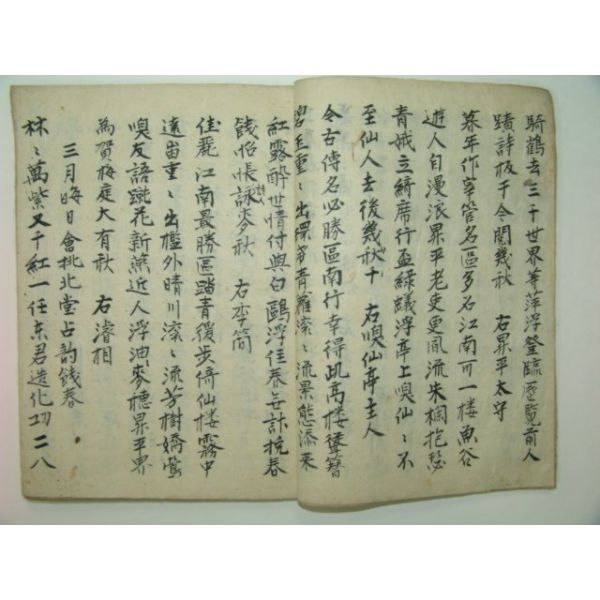 騎鶴去三千世界等萍浮登臨歷覽前人
蹟詩板千今閱幾秋 右昇平太守
暮年作宰管名區多石江南可一樓魚谷
遊人自漫浪昇平老吏更風流朱欄抱瑟
青娥立綺席行盃綠蟻浮亭上喚仙仙不
至仙人去後幾秋十 右喚仙亭主人
令古傳名必勝區南行幸得此高樓聳簪
碧玉重〻出 青羅滾〻流景態添來
紅露酔世情付與白鷗浮佳春無計挽春
餞怊悵詠麥秋 右李簡
佳麗江南最勝區踏青緩步倚仙樓霧中
遠岫重〻出檻外晴川滾〻流芳樹嬌鶯
喚友語蹴花新燕近人浮油〻麥穗昇平界
為賀梅庭大有秋 右濬相
三月晦日會挑北堂占韵餞春
林〻萬紫又千紅一任東君造化功二八